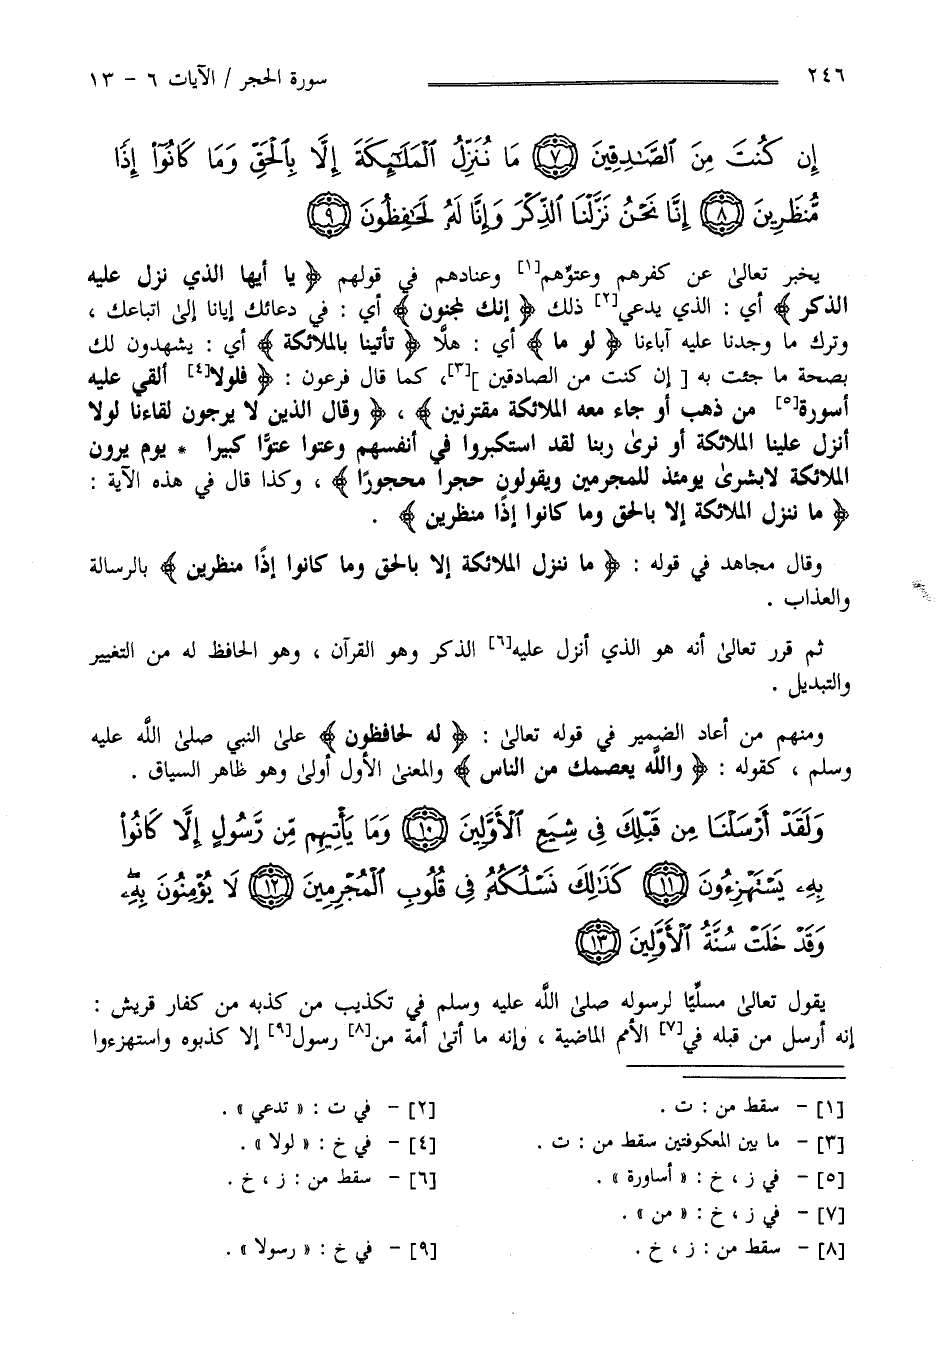 ٢٤٦ سورة الحجر / الآيات ٦ - ١٣
إِن كُنتَ مِنَ ٱلصَّـٰدِقِينَ ٧ مَا نُنَزِّلُ ٱلْمَلَـٰٓئِكَةَ إِلَّا بِٱلْحَقِّ وَمَا كَانُوٓا۟ إِذًا
مُّنظَرِينَ ٨ إِنَّا نَحْنُ نَزَّلْنَا ٱلذِّكْرَ وَإِنَّا لَهُۥ لَحَـٰفِظُونَ ٩
يخبر تعالىٰ عن كفرهم وعتوِّهم[١] وعنادهم في قولهم ﴿ يا أيها الذي نزل عليه
الذكر ﴾ أي : الذي يدعي[٢] ذلك ﴿ إنك لمجنون ﴾ أي : في دعائك إيانا إلىٰ اتباعك ،
وترك ما وجدنا عليه آباءنا ﴿ لو ما ﴾ أي : هلَّا ﴿ تأتينا بالملائكة ﴾ أي : يشهدون لك
بصحة ما جئت به [ إن كنت من الصادقين ][٣]، كما قال فرعون : ﴿ فلولا[٤] ألقي عليه
أسورة[٥] من ذهب أو جاء معه الملائكة مقترنين ﴾ ، ﴿ وقال الذين لا يرجون لقاءنا لولا
أنزل علينا الملائكة أو نرىٰ ربنا لقد استكبروا في أنفسهم وعتوا عتوًّا كبيرا * يوم يرون
الملائكة لابشرىٰ يومئذ للمجرمين ويقولون حجرا محجورًا ﴾ ، وكذا قال في هذه الآية :
﴿ ما ننزل الملائكة إلا بالحق وما كانوا إذًا منظرين ﴾ .
وقال مجاهد في قوله : ﴿ ما ننزل الملائكة إلا بالحق وما كانوا إذًا منظرين ﴾ بالرسالة
والعذاب .
ثم قرر تعالىٰ أنه هو الذي أنزل عليه[٦] الذكر وهو القرآن ، وهو الحافظ له من التغيير
والتبديل .
ومنهم من أعاد الضمير في قوله تعالىٰ : ﴿ له لحافظون ﴾ علىٰ النبي صلىٰ اللَّه عليه
وسلم ، كقوله : ﴿ واللَّه يعصمك من الناس ﴾ والمعنىٰ الأول أولىٰ وهو ظاهر السياق .
وَلَقَدْ أَرْسَلْنَا مِن قَبْلِكَ فِى شِيَعِ ٱلْأَوَّلِينَ ١٠ وَمَا يَأْتِيهِم مِّن رَّسُولٍ إِلَّا كَانُوا۟
بِهِۦ يَسْتَهْزِءُونَ ١١ كَذَٰلِكَ نَسْلُكُهُۥ فِى قُلُوبِ ٱلْمُجْرِمِينَ ١٢ لَا يُؤْمِنُونَ بِهِۦ
وَقَدْ خَلَتْ سُنَّةُ ٱلْأَوَّلِينَ ١٣
يقول تعالىٰ مسلِّيًا لرسوله صلىٰ اللَّه عليه وسلم في تكذيب من كذبه من كفار قريش :
إنه أرسل من قبله في[٧] الأمم الماضية ، وإنه ما أتىٰ أمة من[٨] رسول[٩] إلا كذبوه واستهزءوا
[١] - سقط من : ت . [٢] - في ت : « تدعي » .
[٣] - ما بين المعكوفتين سقط من : ت . [٤] - في خ : « لولا » .
[٥] - في ز ، خ : « أساورة » . [٦] - سقط من : ز ، خ .
[٧] - في ز ، خ : « من » .
[٨] - سقط من : ز ، خ . [٩] - في خ : « رسولا » .